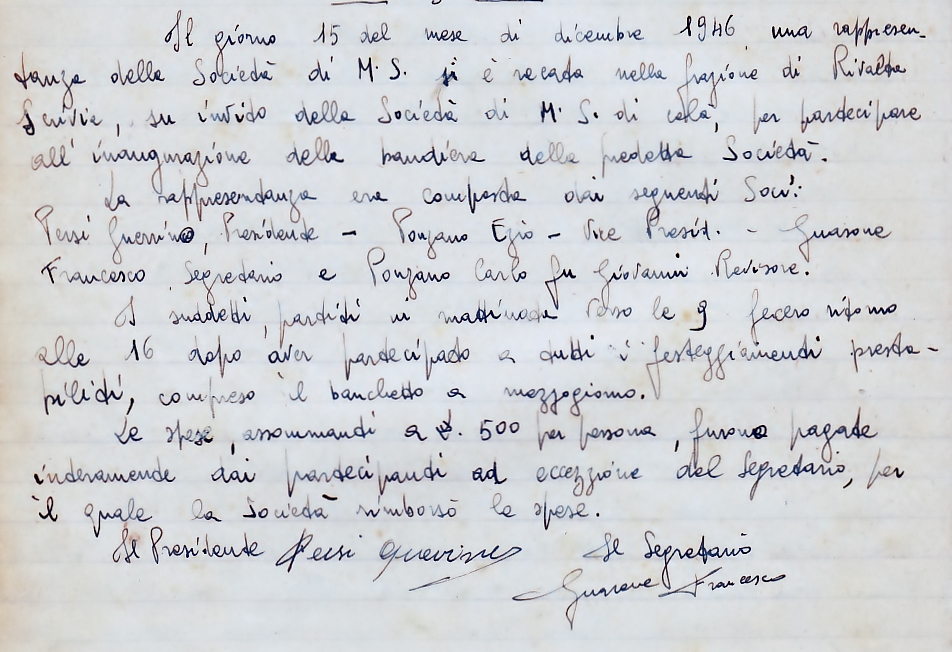 Il giorno 15 del mese di dicembre 1946 una rappresen-
tanza della Società di M. S. si è recata nella frazione di Rivalta
Scrivia, su invito della Società di M. S. di colà, per partecipare
all'inaugurazione della bandiera della predetta Società.
La rappresentanza era composta dai seguenti Soci:
Persi Guerrino, Presidente - Ponzano Ezio - Vice Presid. - Guasone
Francesco Segretario e Ponzano Carlo fu Giovanni Revisore.
I suddetti, partiti in mattinata verso le 9 fecero ritorno
alle 16 dopo aver partecipato a tutti i festeggiamenti presta-
biliti, compreso il banchetto a mezzogiorno.
Le spese, assommanti a £. 500 per persona, furono pagate
interamente dai partecipanti ad eccezzione del Segretario, per
il quale la Società rimborsò le spese.
Il Presidente Persi Guerrino Il Segretario
Guasone Francesco